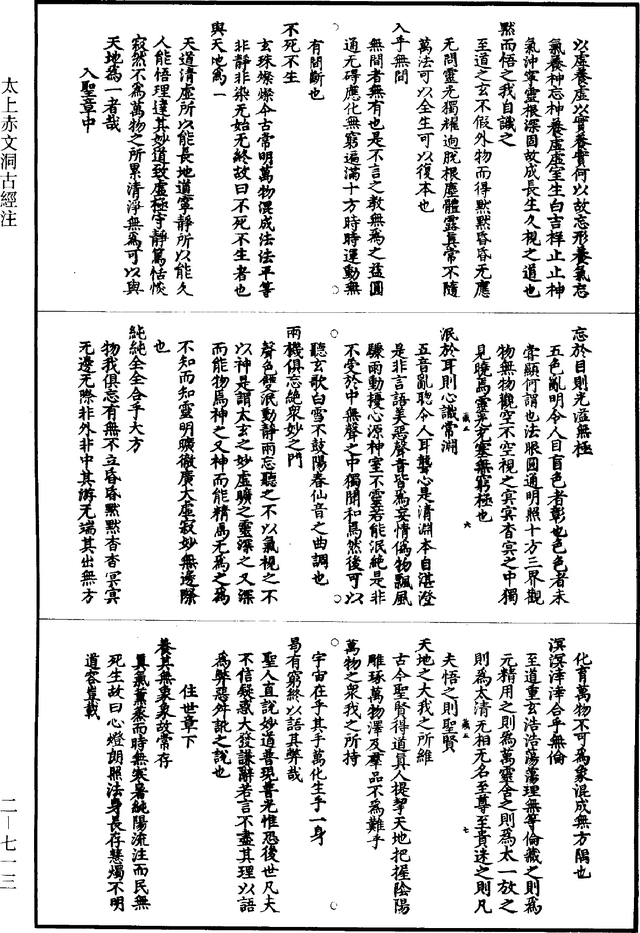 以虛養虛以實養實何以故忘形養氣忘
氣養神忘神養虛虛室生白吉祥止止神
氣沖寧靈根深固故成長生久視之道也
默而悟之我自識之
至道之玄不假外物而得默默昏昏无應
无問靈光獨耀迥脫根塵體露真常不隨
萬法可以全生可以復本也
入乎無間
無間者無有也是不言之教無為之益圓
通无碍應化無窮遍滿十方時時運動無
有間斷也
不死不生
玄珠燦燦今古常明萬物混成法法平等
非靜非染无始无終故曰不死不生者也
與天地為一
天道清虛所以能長地道寧靜所以能久
人能悟理達其妙道致虛極守靜篤恬惔
寂然不為萬物之所累清淨無為可以與
天地為一者哉
入聖章中
忘於目則光溢無極
五色亂明令人目盲色者彰也色色者未
嘗顯何謂也法眼圓通明照十方三界觀
物無物觀空不空視之冥冥杳冥之中獨
見曉焉霈乎光塞無窮極也
泯於耳則心識常淵
五音亂聰令人耳聾心是清淵本自湛澄
是非言語美惡聲音皆為妄情偽物飄風
驟雨動擾心源神室不靈若能泯絕是非
不受於中無聲之中獨聞和焉然後可以
聽玄歌白雪不鼓陽春仙音之曲調也
兩機俱忘絕眾妙之門
聲色雙泯動靜兩忘聽之不以氣視之不
以神是謂太玄之妙虛曠之靈深之又深
而能物焉神之又神而能精焉无為之為
不知而知靈明曠徹廣大虛寂妙無邊際
也
純純全全合乎大方
物我俱忘有無不立昏昏默默杳杳冥冥
无邊无際非外非中其游无端其出無方
化育萬物不可為象混成無方隅也
溟溟涬涬合乎無倫
至道重玄浩浩蕩蕩理無等倫藏之則為
元精用之則為萬靈含之則為太一放之
則為太清无相无名至尊至貴迷之則凡
夫悟之則聖賢
天地之大我之所維
古今聖賢得道真人提挈天地把握陰陽
雕琢萬物澤及羣品不為難乎
萬物之眾我之所持
宇宙在乎其手萬化生乎一身
曷有窮終以語其弊哉
聖人直說妙道普現普光惟恐後世凡夫
不信疑惑大發謙辭若言不盡其理以語
為弊惡舛訛之說也
住世章下
養其無象象故常存
真氣薰蒸而時無寒暑純陽流注而民無
死生故曰心燈朗照法身長存慧燭不明
道容豈載
太上赤文洞古經注
二—七一三